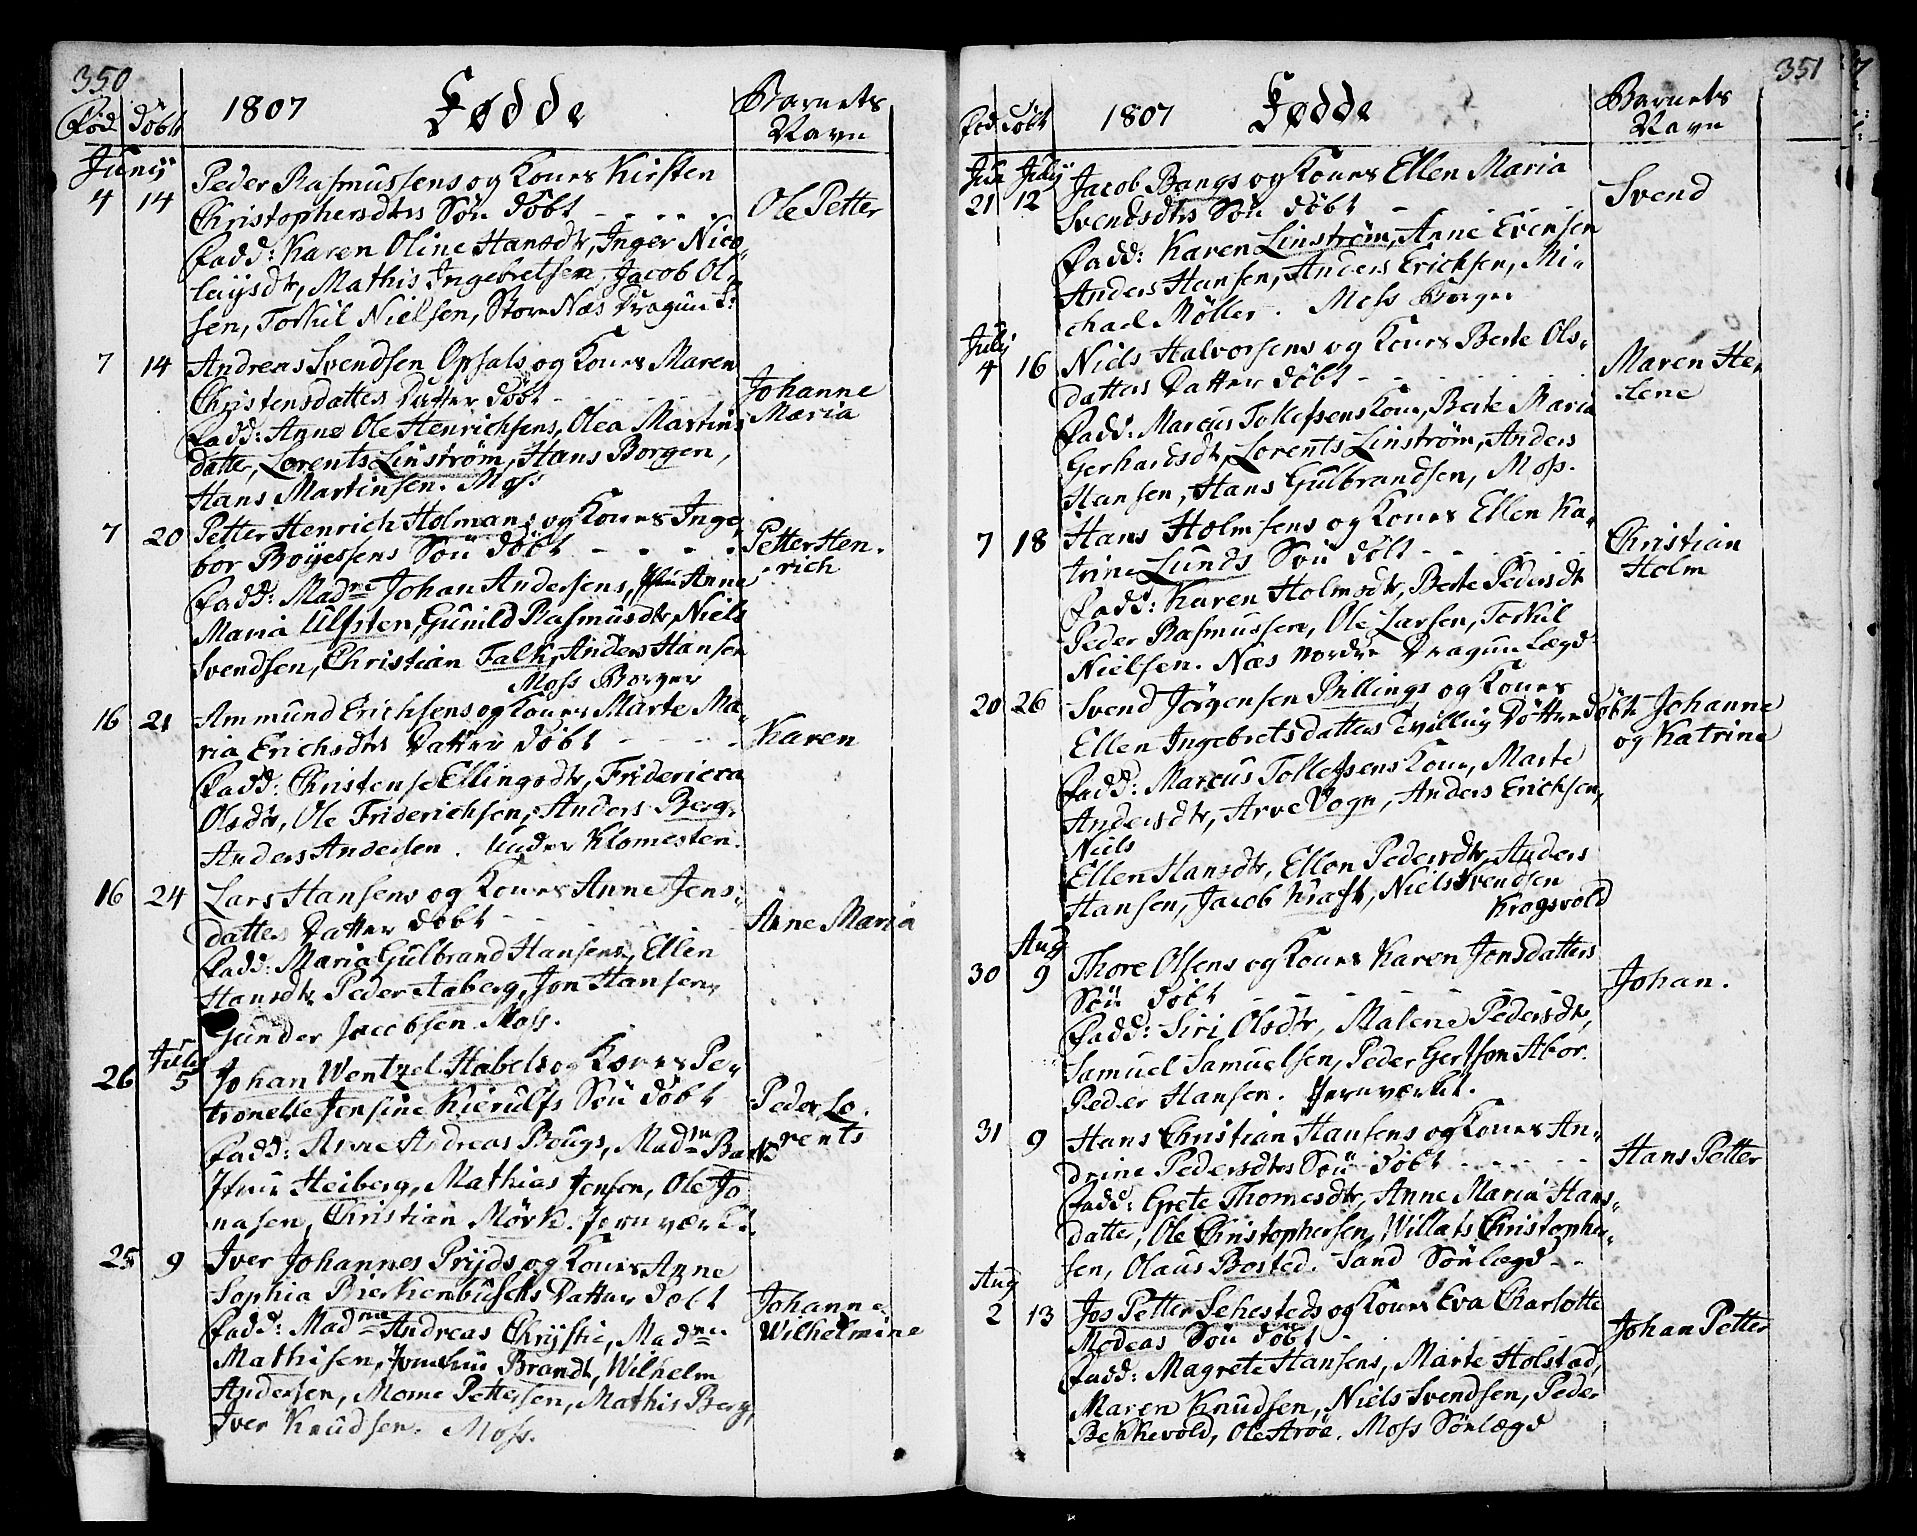 350
Fød Döbt 1807 Fødde Barnets Navn
Juny
4 14 Peder Rasmussens og Kones Kirsten
Christophersdtrs Sön döbt - - - - Ole Petter
Fadd: Karen Oline Hansdtr, Inger Nico
laysdtr, Mathis Ingebretsen, Jacob Ol-
sen, Torkil Nielsen, Store Næs Dragun L:
7 14 Andreas Svendsen Opsals og Kones Maren
Christensdatters Datter döbt - - - - Johanne Maria
Fadd: Anne Ole Henrichsens, Olea Martins
datter, Lorents Linström, Hans Borgen,
Hans Martinsen. Moss.
7 20 Petter Henrich Holmans og Kones Inge
bor Boyessens Sön döbt - - - - Petter Hen-
rich
Fadd: Madme Johan Andersens, Jfru Anne
Maria Ulfsten, Gunild Rasmusdtr, Niels
Svendsen, Christian Falk, Anders Hansen
Moss Borger
16 21 Ammund Erichsens og Kones Marte Ma-
ria Erichsdtrs Datter döbt - - - - Karen
Fadd: Christense Ellingsdtr, Fridericca
Olsdtr, Ole Friderichsen, Anders Berg,
Anders Andersen. Under Klomesten.
16 24 Lars Hansens og Kones Anne Jens-
datters Datter döbt - - - Anne Maria
Fadd: Maria Gulbrand Hansens, Ellen
Hansdtr, Peder Aaberg, Jon Hansen,
Gunder Jacobsen Moss.
July
26 5 Johan Wentzel Habels og Kones Pe-
tronelle Jensine Kierulfs Sön döbt Peder Lo-
rents
Fadd: Anne Andreas Bougs, Madme Bank
Jfrue Heiberg, Mathias Jensen, Ole Jo
nasen, Christian Mörk. Jernværket.
25 9 Iver Johannes Pryds og Kones Anne
Sophia Bierkenbuschs Datter döbt Johanne
Wilhelmine
Fadd: Madme Andreas Chrystie, Madme
Mathisen, Jomfru Brandt, Wilhelm
Andersen, Mome Pettersen, Mathis Berg,
Iver Knudsen. Moss.
351
Fød Döbt 1807 Fødde Barnets Navn
Jun July
21 12 Jacob Bangs og Kones Ellen Maria
Svendsdtrs Sön döbt - - - - Svend
Fadd: Karen Linström, Anne Evensen
Anders Hansen, Anders Erichsen, Mi-
chael Möller. Moss Borger
July
4 16 Niels Halvorsens og Kones Berte Ols-
datters Datter döbt - - - - Maren He-
lene
Fadd: Marcus Tollefsens Kone, Berte Maria
Gerhardsdtr, Lorents Linström, Anders
Hansen, Hans Gulbrandsen, Moss.
7 18 Hans Holmsens og Kones Ellen Ka-
trine Lunds Sön döbt - - - - Christian
Holm
Fadd: Karen Holmsdtr, Berte Pedersdtr
Peder Rasmussen, Ole Larsen, Torkil
Nielsen. Næs nordre Dragun Lægd
20 26 Svend Jörgensen Billings og Kones
Ellen Ingebretsdatters Tvilling Döttre döbt Johanne
og Katrine
Fadd: Marcus Tollefsens Kone, Marte
Andersdtr, Arve Vogn, Anders Erichsen,
Niels
Ellen Hansdtr, Ellen Pedersdtr, Anders
Hansen, Jacob Kraft, Niels Svendsen
Krogsvold
Aug
30 9 Thore Olsens og Kones Karen Jonsdatters
Sön döbt - - - - Johan.
Fadd: Siri Olsdtr, Malene Pedersdtr,
Samuel Samuelsen, Peder Gertson Abor.
Peder Hansen. Jernværket.
31 9 Hans Christian Hansens og Kones An-
drine Pedersdtrs Sön döbt - - - - Hans Petter
Fadd: Grete Thomesdtr, Anne Maria Hans-
datter, Ole Christophersen, Willats Christopher-
sen, Olaus Bosted. Sand Sönlægd - -
Aug
2 13 Jos Petter Sehesteds og Kones Eva Charlotte
Modeas Sön döbt - Johan Petter
Fadd: Magrete Hansens, Marte Holstad,
Maren Knudsen, Niels Svendsen, Peder
Bekkevold, Ole Aröe. Moss Sönlægd